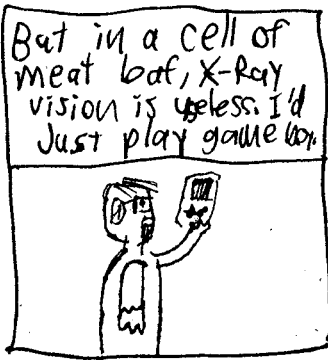 But in a cell of
meat loaf, X-Ray
vision is useless. I'd
Just play game boy.